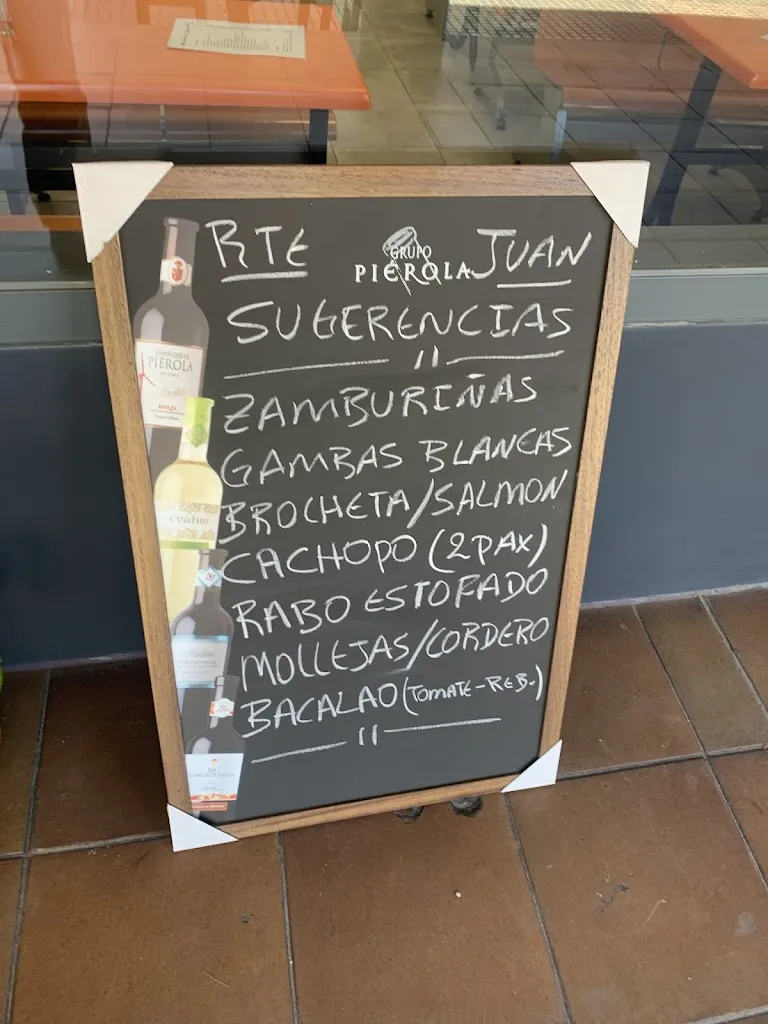 RTE GRUPO PIÉROLA JUAN
SUGERENCIAS
ZAMBURIÑAS
GAMBAS BLANCAS
BROCHETA/SALMON
CACHOPO (2PAX)
RABO ESTOFADO
MOLLEJAS/CORDERO
BACALAO (TOMATE-REB.)
PIÉROLA
RIOJA